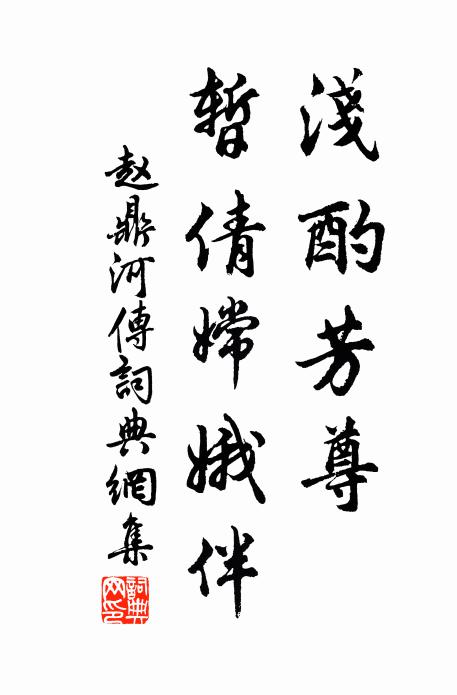 淺酌芳尊
暫倩嫦娥伴
赵鼎河傳詞典網集
詞典網印